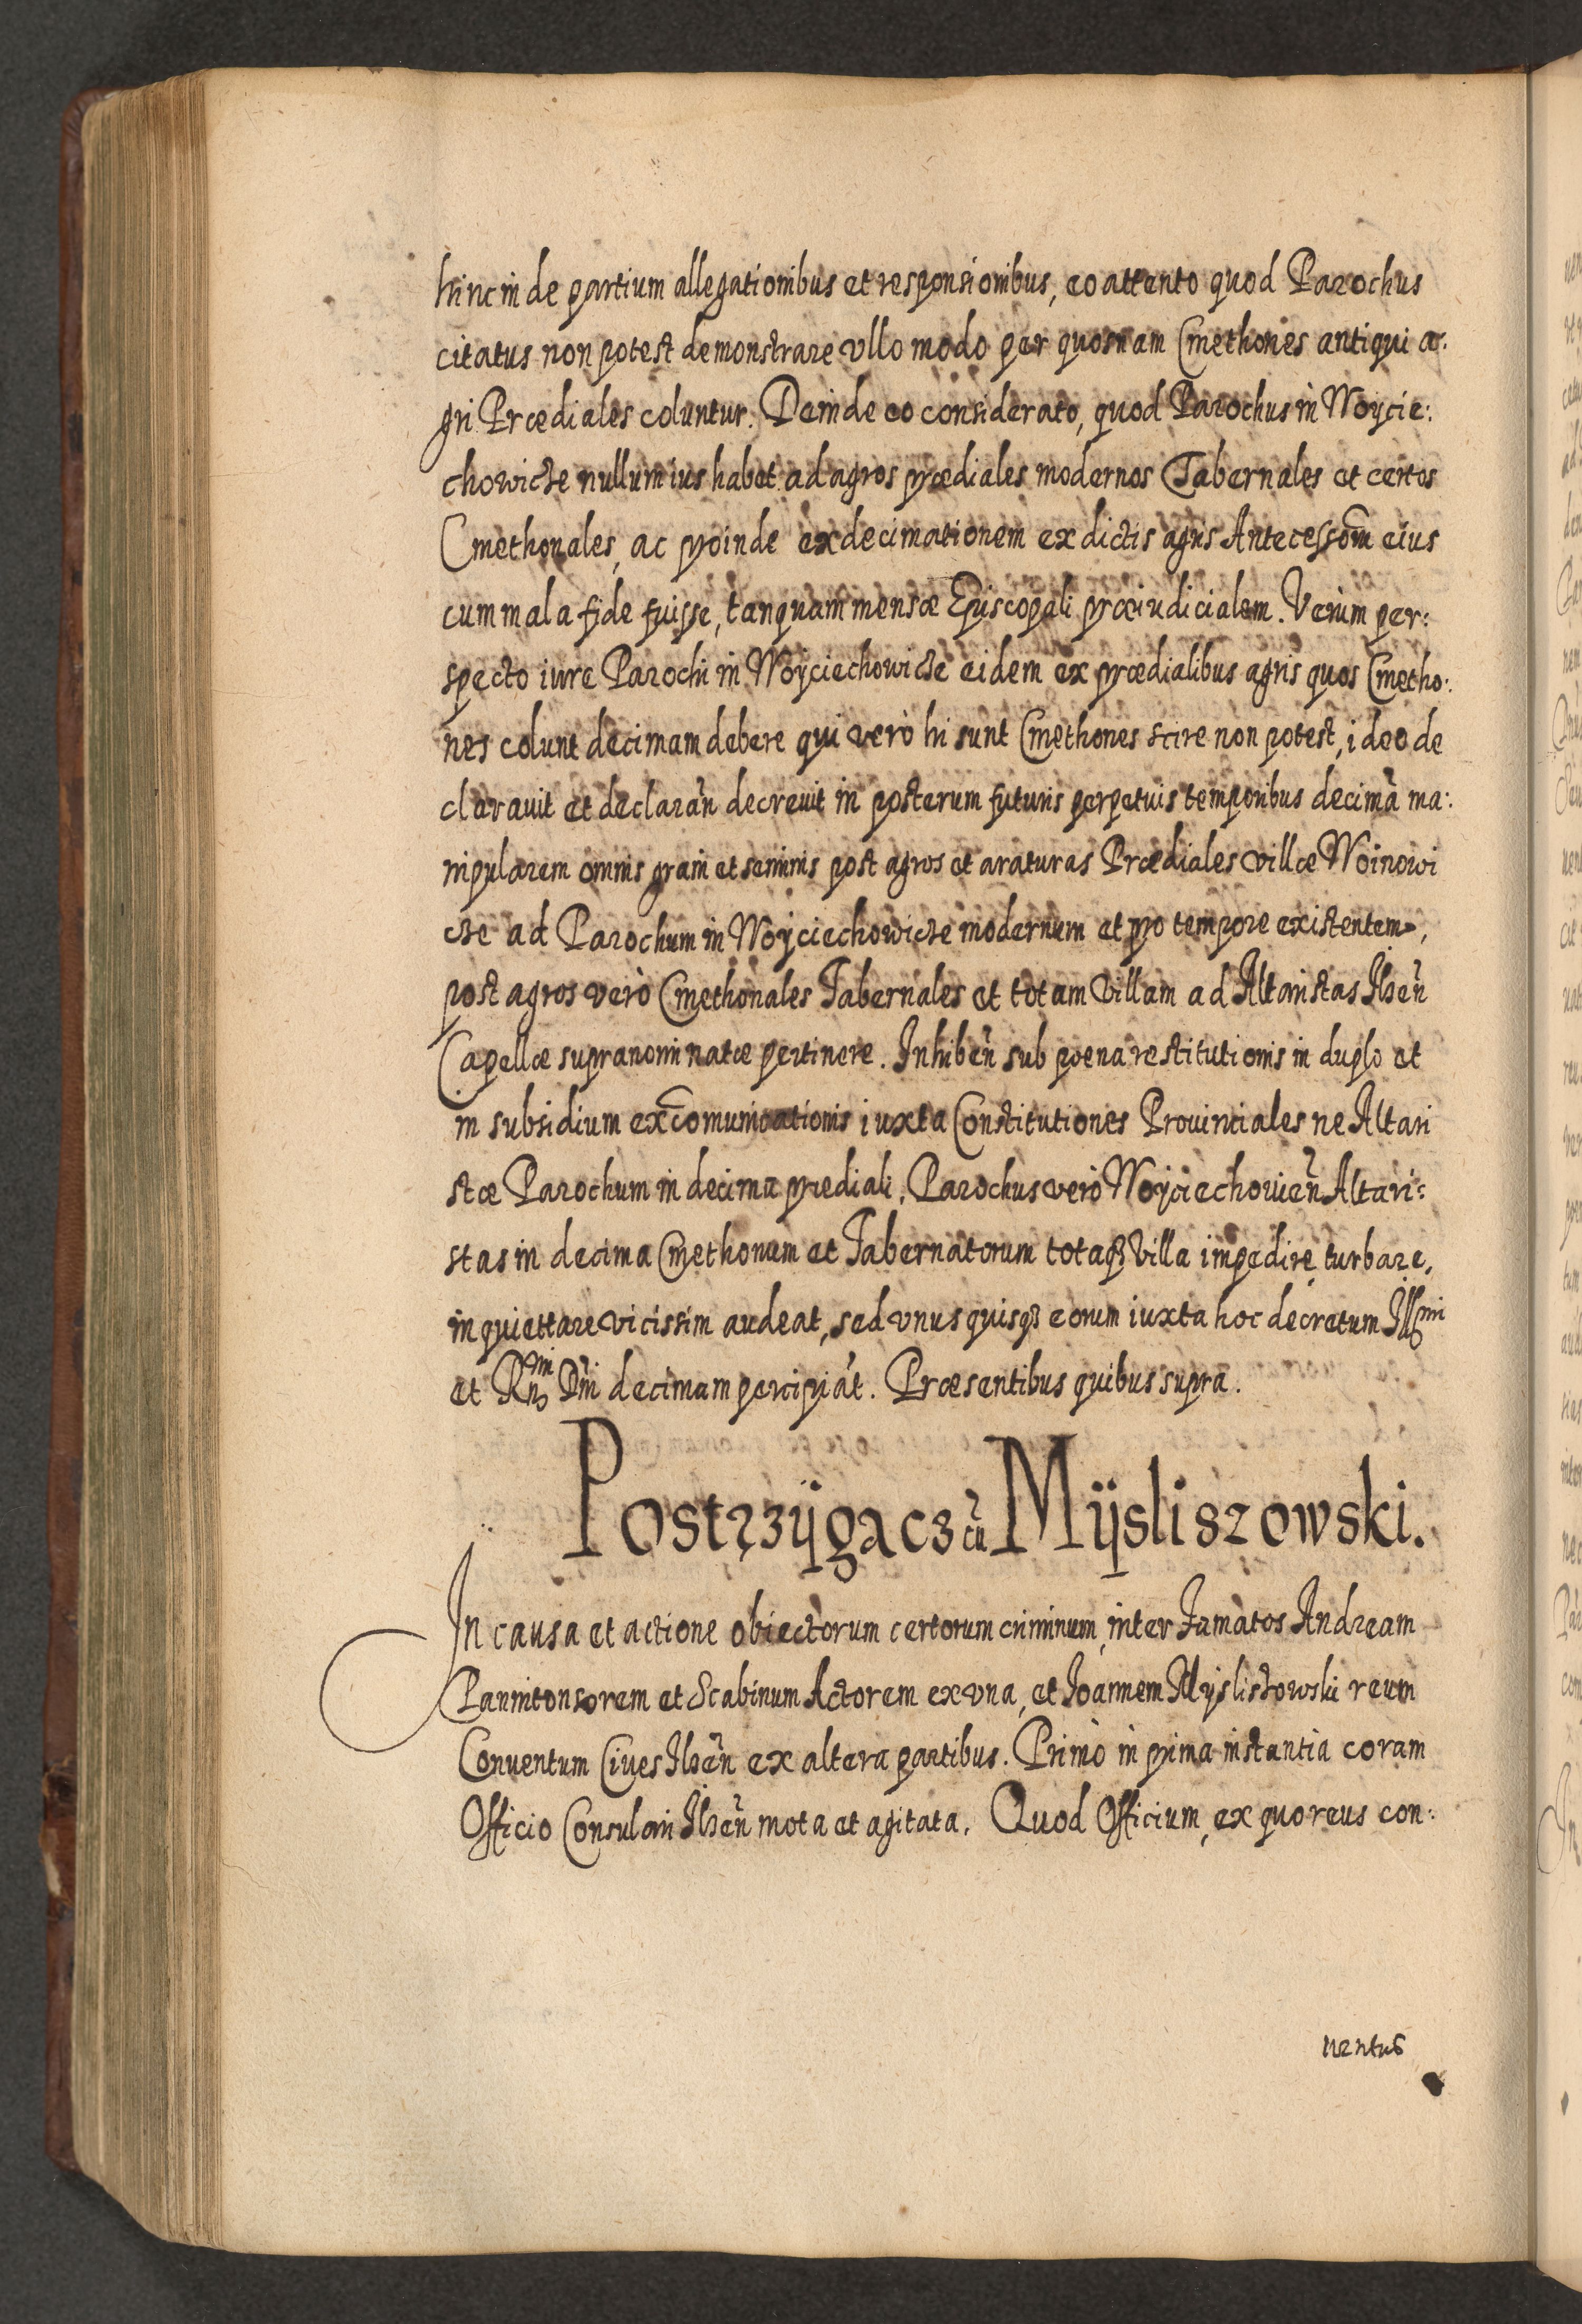 hinc inde partium allegationibus et responsionibus, eo attento quod Parochus
citatus non potest demonstrare vllo modo per quosnam Cmethones antiqui a:
gri Prædiales coluntur. Deinde eo considerato, quod Parochus in Woycie:
chowicze nullum ius habet ad agros prædiales modernos Tabernales et certos
Cmethonales, ac proinde exdecimationem ex dictis agris Antecessom̃ eius
cum mala fide fuisse, tanquam mensæ Episcopali præiudicialem. Verùm per:
specto iure Parochi in Woÿciechowicze eidem ex prædialibus agris quos Cmetho:
nes colunt decimam debere qui verò hi sunt Cmethones scire non potest, ideo de
clarauit et declarañ decreuit in posterum futuris perpetuis temporibus decimã ma:
nipularem omnis grani et seminis post agros et araturas Prædiales villæ Woinowi
cze ad Parochum in Woÿciechowicze modernum et pro tempore existentem,
post agros verò Cmethonales Tabernales et totam Villam ad Altaristas Ilzeñ
Capellæ supranominatæ pertinere. Inhibeñ sub poena restitutionis in duplo et
in subsidium excõmunicationis iuxta Constitutiones Prouinciales ne Altari
stæ Parochum in decima prædiali, Parochus verò Woÿciechowieñ Altari:
stas in decima Cmethonum et Tabernatorum totaqꝫ Villa impedire, turbare,
inquiettare vicissim audeat, sed vnusquisqꝫ eorum iuxta hoc decretum Illmi
et Rmi Dñi decimam percipiãt. Præsentibus quibus supra.
Postrzÿgacz cũ Mÿsliszowski.
In causa et actione obiectorum certorum criminum, inter Famatos Andream
Pannitonsorem et Scabinum Actorem ex vna, et Ioannem Mysliszowski reum
Conuentum Ciues Ilzeñ ex altera partibus. Primò in prima instantia coram
Officio Consulari Ilzeñ mota et agitata. Quod Officium, ex quo reus con:
uentus